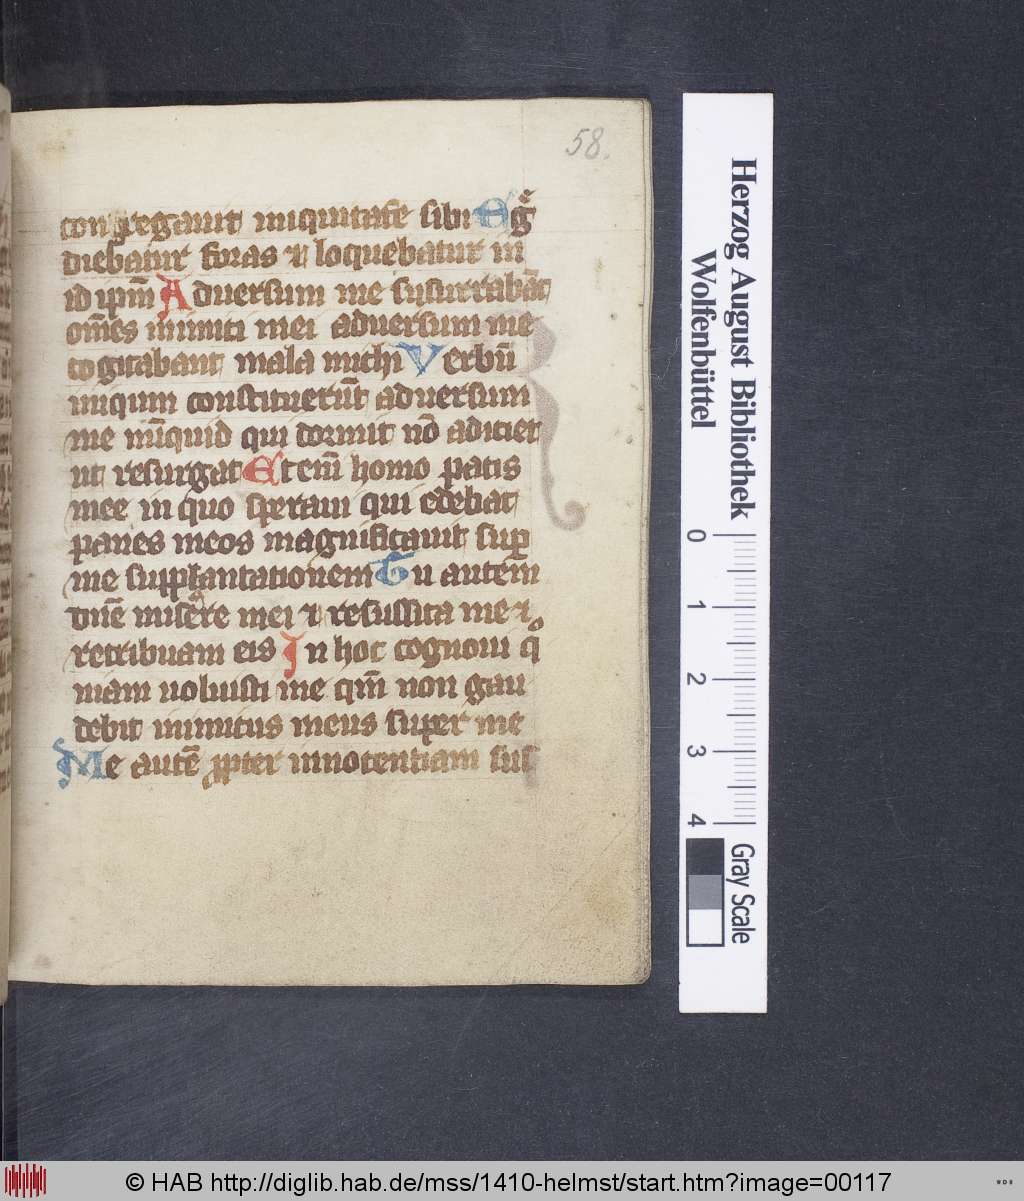 58.
congregauit iniquitatē sibi Egͬ
diebatur foras ⁊ loquebatur in
id ipm̄ Aduersum me susurrabāt
om̄es inimici mei aduersum me
cogitabant mala michi Verbū
iniqum constituerūt aduersum
me nūquid qui dormit nō adiciet
ut resurgat Etem̄ homo pacis
mee in quo speraui qui edebat
panes meos magnificauit sup̄
me supplantationem Tu autem
dn̄e miserere mei ⁊ resussita me ⁊
retribuam eis In hoc cognoui qͦ
niam uoluisti me qm̄ non gau
debit inimicus meus super me
Me autē ꝓpter innocentiam sus
Herzog August Bibliothek
Wolfenbüttel
0 1 2 3 4
Gray Scale
© HAB http://diglib.hab.de/mss/1410-helmst/start.htm?image=00117